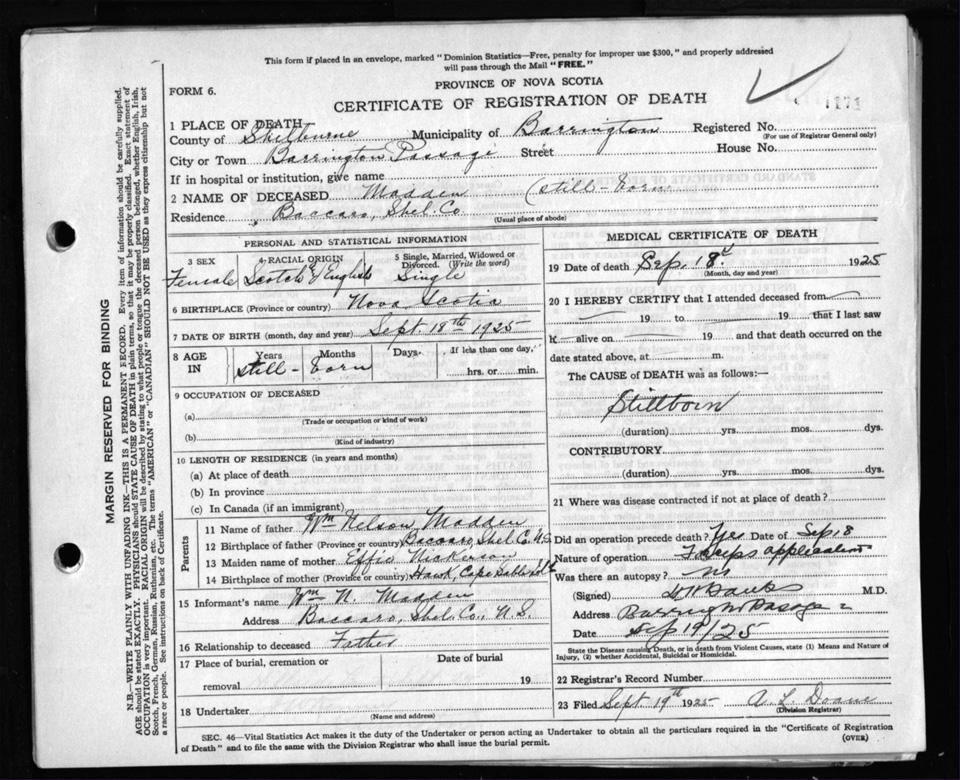 This form if placed in an envelope, marked "Dominion Statistics—Free, penalty for improper use $300," and properly addressed
will pass through the Mail "FREE."
PROVINCE OF NOVA SCOTIA
FORM 6.
CERTIFICATE OF REGISTRATION OF DEATH
1 PLACE OF DEATH
County of Shelburne Municipality of Barrington Registered No.
(For use of Registrar General only)
City or Town Barrington Passage Street House No.
If in hospital or institution, give name
2 NAME OF DECEASED Madden (still-born
Residence Baccaro, Shel. Co
(Usual place of abode)
PERSONAL AND STATISTICAL INFORMATION
3 SEX 4 RACIAL ORIGIN 5 Single, Married, Widowed or Divorced. (Write the word)
Female Scotch & English Single
6 BIRTHPLACE (Province or country) Nova Scotia
7 DATE OF BIRTH (month, day and year) Sept 18th 1925
8 AGE IN Years Months Days If less than one day,
still-born hrs. or min.
9 OCCUPATION OF DECEASED
(a)
(Trade or occupation or kind of work)
(b)
(Kind of industry)
10 LENGTH OF RESIDENCE (in years and months)
(a) At place of death
(b) In province
(c) In Canada (if an immigrant)
Parents
11 Name of father Wm Nelson Madden
12 Birthplace of father (Province or country) Baccaro, Shel. Co. N.S.
13 Maiden name of mother Effie Nickerson
14 Birthplace of mother (Province or country) Hawk, Cape Sable Isl
15 Informant's name Wm N. Madden
Address Baccaro, Shel. Co., N.S.
16 Relationship to deceased Father
17 Place of burial, cremation or Date of burial
removal 19
18 Undertaker
(Name and address)
MEDICAL CERTIFICATE OF DEATH
19 Date of death Sep. 18 1925
(Month, day and year)
20 I HEREBY CERTIFY that I attended deceased from
19 to 19 that I last saw
h alive on 19 and that death occurred on the
date stated above, at m.
The CAUSE of DEATH was as follows:—
Stillborn
(duration) yrs. mos. dys.
CONTRIBUTORY
(duration) yrs. mos. dys.
21 Where was disease contracted if not at place of death?
Did an operation precede death? Yes Date of Sep 8
Nature of operation Forceps application
Was there an autopsy? no
(Signed) M.D.
Address Barrington Passage
Date Sep 19/25
State the Disease causing Death, or in death from Violent Causes, state (1) Means and Nature of
Injury, (2) whether Accidental, Suicidal or Homicidal.
22 Registrar's Record Number
23 Filed Sept 19th 1925 A. L. Doane
(Division Registrar)
SEC. 46—Vital Statistics Act makes it the duty of the Undertaker or person acting as Undertaker to obtain all the particulars required in the "Certificate of Registration
of Death" and to file the same with the Division Registrar who shall issue the burial permit. (OVER)
MARGIN RESERVED FOR BINDING
N.B.—WRITE PLAINLY WITH UNFADING INK—THIS IS A PERMANENT RECORD. Every item of information should be carefully supplied.
AGE should be stated EXACTLY. PHYSICIANS should STATE CAUSE OF DEATH in plain terms, so that it may be properly classified. Exact statement of
OCCUPATION is very important. RACIAL ORIGIN will be described by stating to what people or tongue the deceased person belonged, whether English, Irish,
Scotch, French, German, Russian, Ruthenian, etc. The terms "AMERICAN" or "CANADIAN" SHOULD NOT BE USED as they express citizenship but not
a race or people. See instructions on back of Certificate.